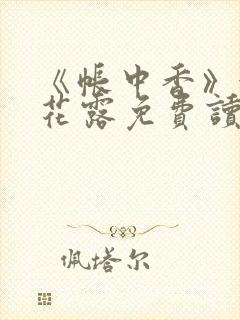 《帳中香》
花露免費讀
佩塔尔